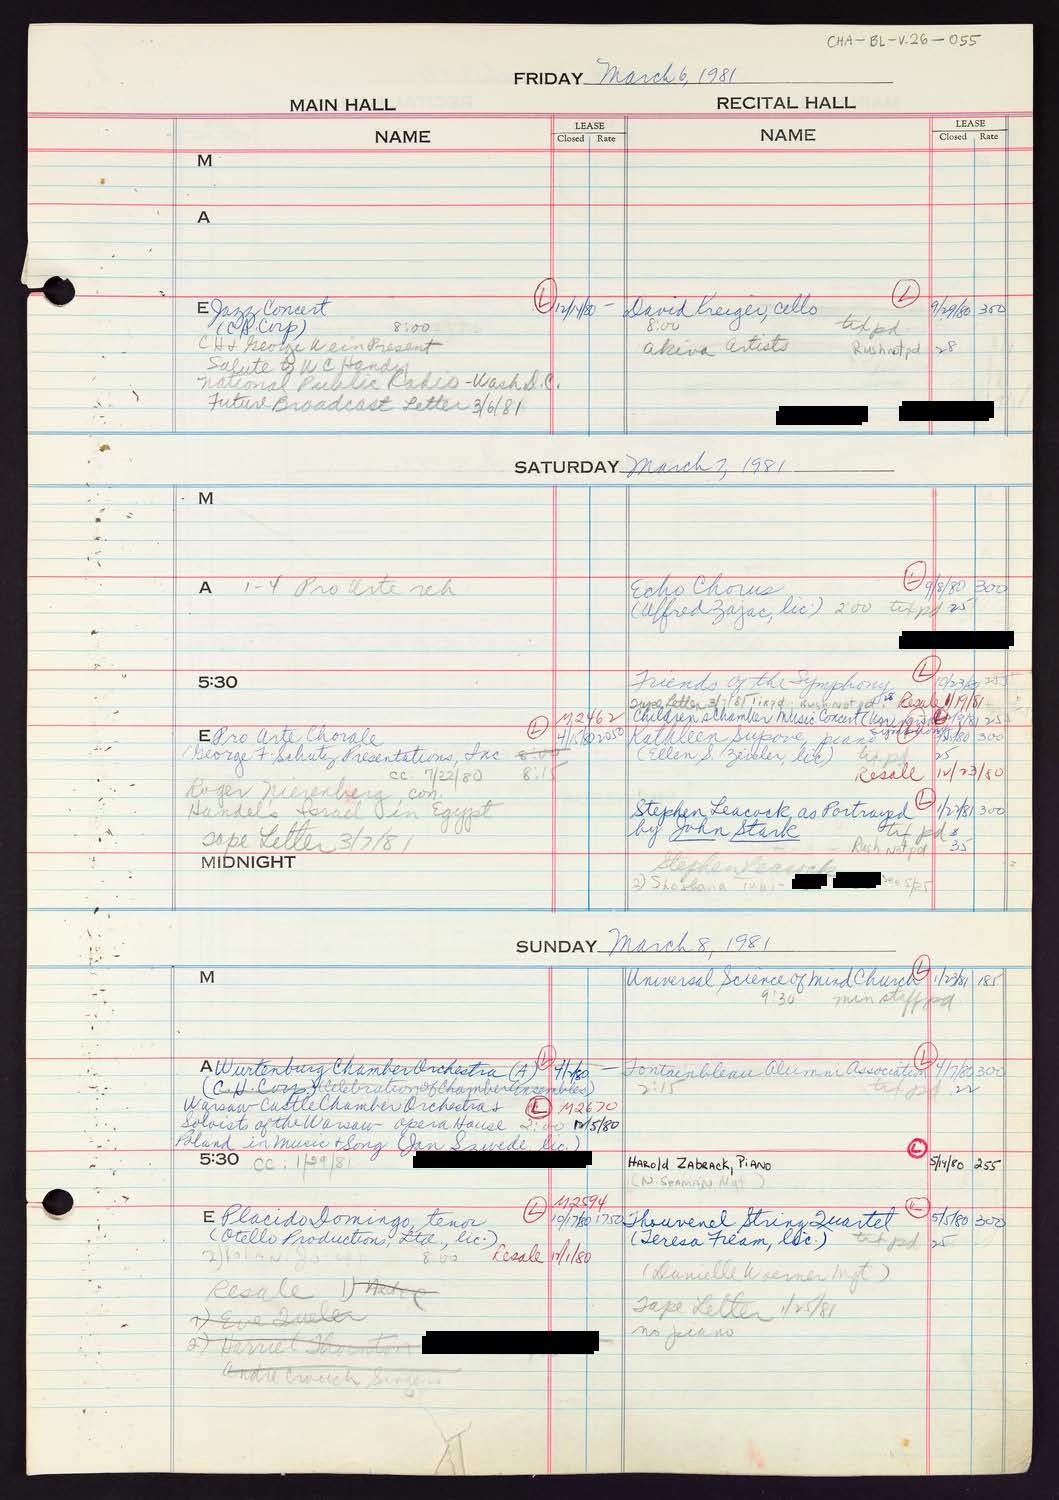 CHA-BL-V.26-055
FRIDAY March 6, 1981
MAIN HALL RECITAL HALL
NAME LEASE Closed Rate NAME LEASE Closed Rate
M
A
E Jazz Concert L 12/14/80 —
(C.H. Corp) 8:00
CH & George Wein Present
Salute to W C Handy
National Public Radio - Wash D.C.
Future Broadcast Letter 3/6/81
David Kreiger, cello L 9/29/80 350
8:00 txt pd
Akiva Artists Rush not pd 28
SATURDAY March 7, 1981
M
A 1-4 Pro Arte reh
Echo Chorus L 9/8/80 300
(Alfred Zajac, lic.) 2:00 txt pd 25
5:30
Friends of the Symphony L 10/23/80 255
Tape Letter Rush Not pd Resale 1/19/81
Children's Chamber Music Concert
M2462
E Pro Arte Chorale L 4/15/80 2050
George F. Schutz Presentations, Inc 8:00
cc. 7/22/80 8:15
Roger Nierenberg con.
Handel's Israel in Egypt
Tape Letter 3/7/81
Kathleen Supove, piano 300
(Ellen S. Zeisler, lic) 25
Resale 12/23/80
Stephen Leacock as Portrayed L 1/27/81 300
by John Stark txt pd
Rush Not pd 35
MIDNIGHT
Stephen Leacock
2) Shoshana
SUNDAY March 8, 1981
M
Universal Science of Mind Church L 1/23/81 185
9:30 min staff pd
A Wurtenburg Chamber Orchestra (A) L 4/2/80 —
(C.H. Corp.) (Celebration of Chamber Ensembles)
Warsaw Castle Chamber Orchestra & L M2670
Soloists of the Warsaw Opera House 2:00 12/5/80
Poland in Music & Song (Jan Szwede, lic.)
Fontainbleau Alumni Association L 4/7/80 300
2:15 txt pd 22
5:30 cc: 1/29/81
Harold Zabrack, Piano L 5/14/80 255
(N. Seaman Mgt)
M2594
E Placido Domingo, tenor L 10/17/80 1750
(Otello Productions, Ltd., lic.)
8:00 Resale 12/1/80
Resale 1)
1) Eve Queler
2) Harriet Thornton
Andre Crouch Singers
Thouvenel String Quartet L 5/5/80 300
(Teresa Fream, lic.) txt pd 25
(Danielle Woerner Mgt)
Tape Letter 1/25/81
no piano